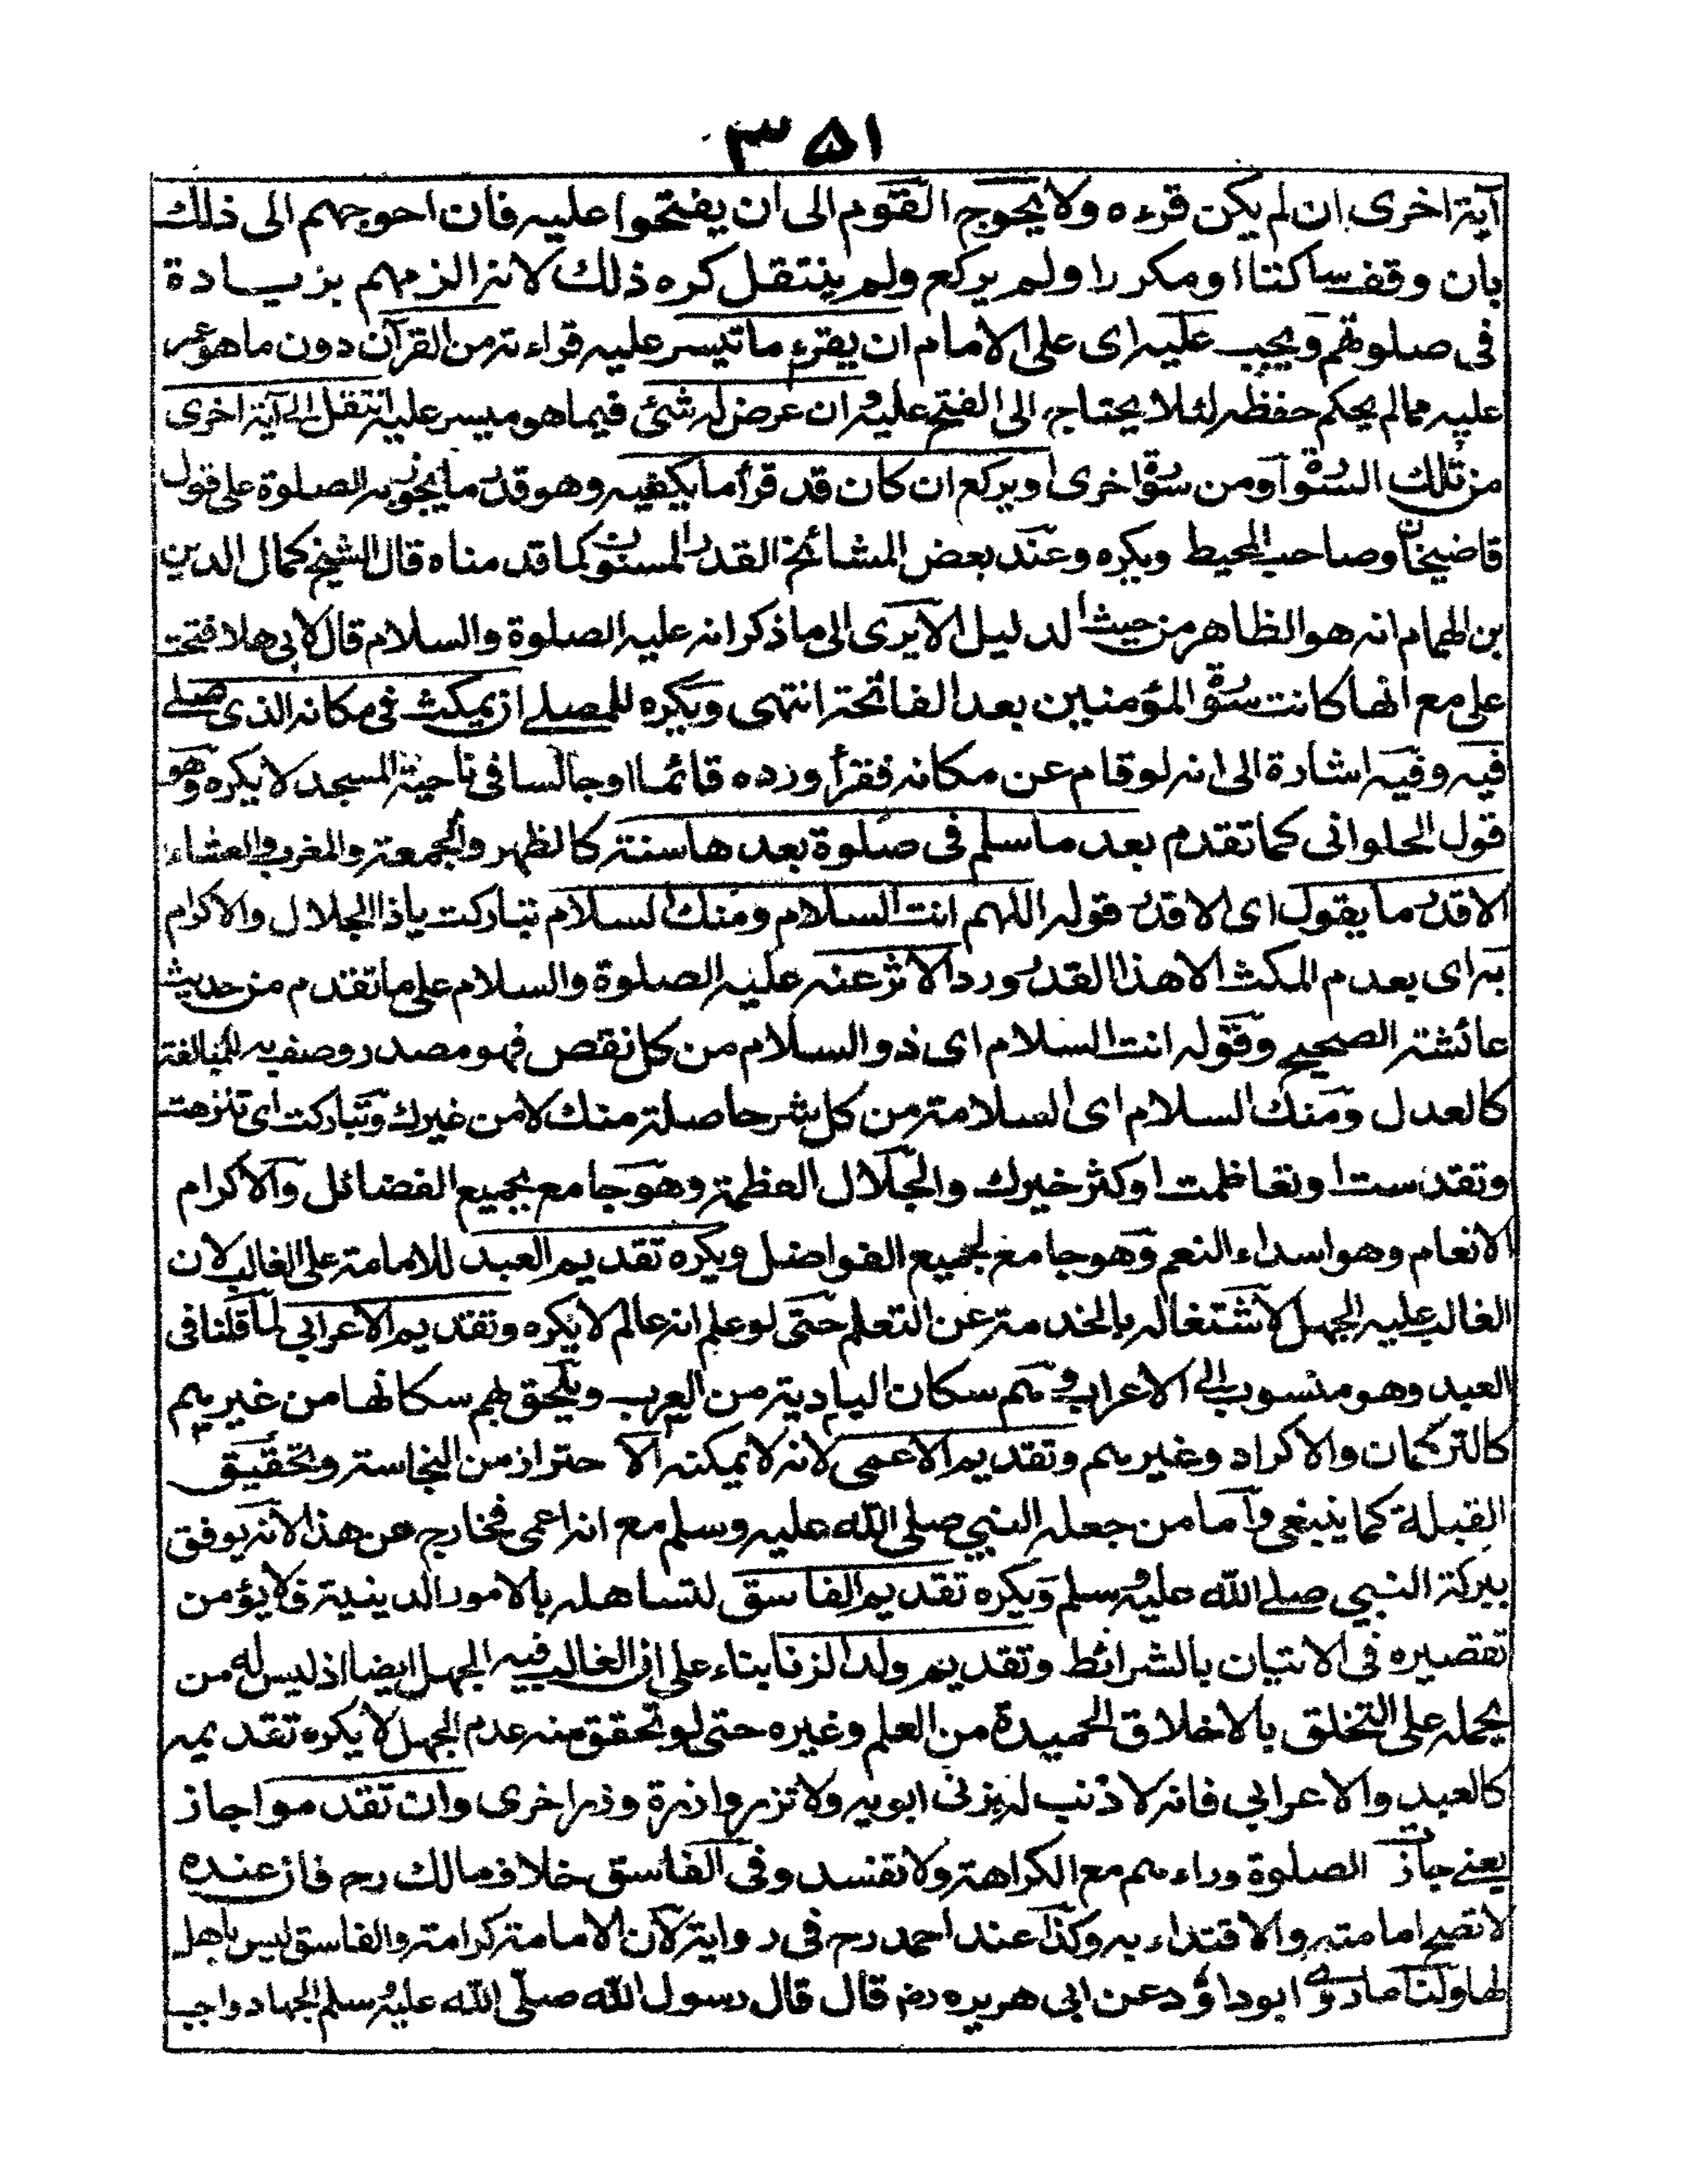 ۳۵۱
آية اخرى ان لم يكن قرءه ولا يحوج القوم الى ان يفتحوا عليه فان احوجهم الى ذلك
بان وقف ساكتا او مكررا ولم يركع ولم ينتقل كره ذلك لانه الزمهم بزيادة
فى صلوتهم ويجب عليه اى على الامام ان يقرء ما تيسر عليه قراءته من القرآن دون ما هو عسر
عليه مما لم يحكم حفظه لئلا يحتاج الى الفتح عليه وان عرض له شئ فيما هو ميسر عليه انتقل الى آية اخرى
من تلك السورة او من سورة اخرى او يركع ان كان قد قرأ ما يكفيه وهو قدر ما يجوز به الصلوة على قول
قاضيخان وصاحب المحيط ويكره وعند بعض المشائخ القدر المسنون كما قدمناه قال الشيخ كمال الدين
بن الهمام انه هو الظاهر من حيث الدليل الا يرى الى ما ذكر انه عليه الصلوة والسلام قال لابى هلا فتحت
على مع انها كانت سورة المؤمنين بعد الفاتحة انتهى ويكره للمصلے ان يمكث فى مكانه الذى صلے
فيه وفيه اشارة الى انه لو قام عن مكانه فقرأ ورده قائما او جالسا فى ناحية المسجد لا يكره وهو
قول الحلوانى كما تقدم بعد ما سلم فى صلوة بعدها سنة كالظهر والجمعة والمغرب والعشاء
الا قدر ما يقول اى الا قدر قوله اللهم انت السلام ومنك السلام تباركت ياذا الجلال والاكرام
به اى بعدم المكث الا هذا القدر ورد الاثر عنه عليه الصلوة والسلام على ما تقدم من حديث
عائشة الصحيح وقوله انت السلام اى ذو السلام من كل نقص فهو مصدر وصف به للمبالغة
كالعدل ومنك السلام اى السلامة من كل شر حاصلة منك لا من غيرك وتباركت اى تنزهت
وتقدست او تعاظمت او كثر خيرك والجلال العظمة وهو جامع بجميع الفضائل والاكرام
الانعام وهو اسداء النعم وهو جامع لجميع الفواضل ويكره تقديم العبد للامامة على الغالب لان
الغالب عليه الجهل لاشتغاله بالخدمة عن التعلم حتى لو علم انه عالم لا يكره وتقديم الاعرابي لما قلنا فى
العبد وهو منسوب الى الاعراب وهم سكان البادية من العرب ويلحق بهم سكانها من غيرهم
كالتركمان والاكراد وغيرهم وتقديم الاعمى لانه لا يمكنه الا حتراز من النجاسة وتحقيق
القبلة كما ينبغى واما من جعله النبي صلى الله عليه وسلم مع انه اعمى فخارج عن هذا لانه يوفق
ببركة النبي صلے الله عليه وسلم ويكره تقديم الفاسق لتساهله بالامور الدينية فلا يؤمن
تقصيره فى الاتيان بالشرائط وتقديم ولد الزنا بناء على ان الغالب فيه الجهل ايضا اذ ليس له من
يحمله على التخلق بالاخلاق الحميدة من العلم وغيره حتى لو تحقق منه عدم الجهل لا يكره تقديمه
كالعبد والاعرابي فانه لا ذنب له بزنى ابويه ولا تزر وازرة وزر اخرى وان تقدموا جاز
يعنے جازت الصلوة وراءهم مع الكراهة ولا تفسد وفى الفاسق خلاف مالك رح فان عنده
لا تصح امامته والاقتداء به وكذا عند احمد رح فى رواية لان الامامة كرامة والفاسق ليس باهل
لها ولنا ما روى ابوداؤد عن ابى هريره رض قال قال رسول الله صلّى الله عليه وسلم الجهاد واجب